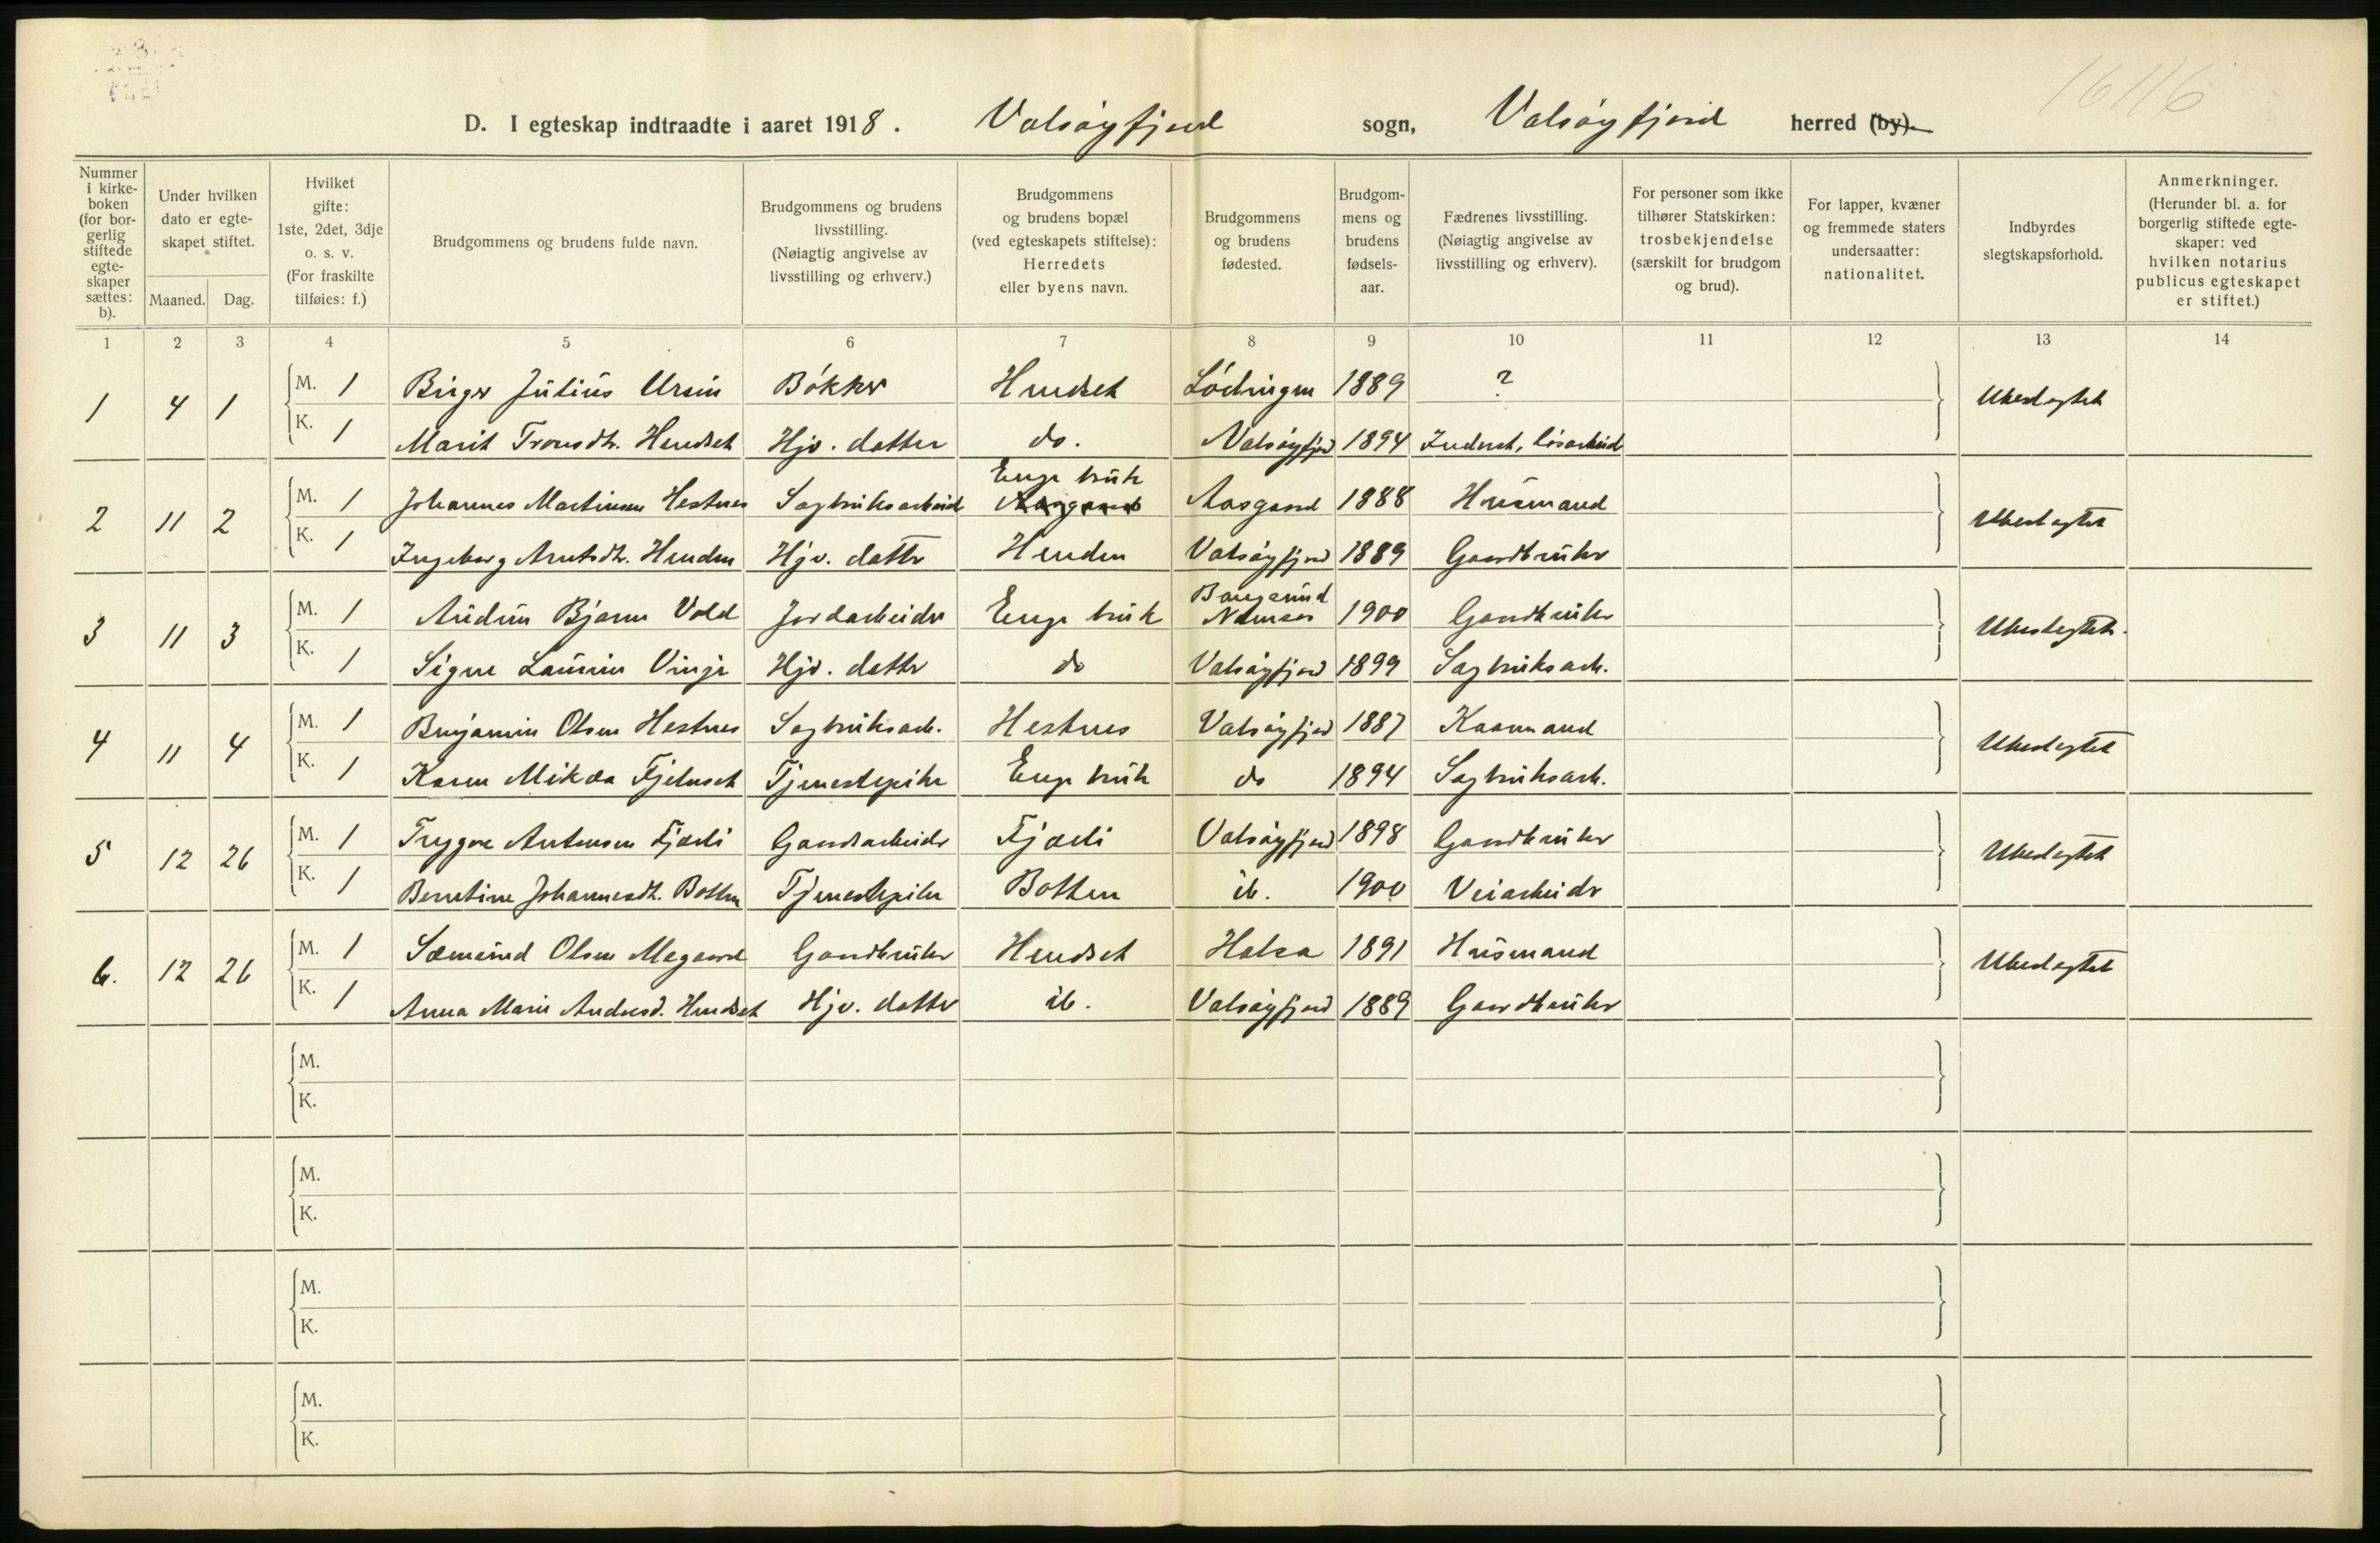 D. I egteskap indtraadte i aaret 1918. Valsøyfjord sogn, Valsøyfjord herred (by).
1616
Nummer i kirke-boken (for bor-gerlig stiftede egte-skaper sættes: b).
Under hvilken dato er egte-skapet stiftet.
Maaned. Dag.
Hvilket gifte: 1ste, 2det, 3dje o. s. v. (For fraskilte tilføies: f.)
Brudgommens og brudens fulde navn.
Brudgommens og brudens livsstilling. (Nøiagtig angivelse av livsstilling og erhverv.)
Brudgommens og brudens bopæl (ved egteskapets stiftelse): Herredets eller byens navn.
Brudgommens og brudens fødested.
Brudgom-mens og brudens fødsels-aar.
Fædrenes livsstilling. (Nøiagtig angivelse av livsstilling og erhverv).
For personer som ikke tilhører Statskirken: trosbekjendelse (særskilt for brudgom og brud).
For lapper, kvæner og fremmede staters undersaatter: nationalitet.
Indbyrdes slegtskapsforhold.
Anmerkninger. (Herunder bl. a. for borgerlig stiftede egte-skaper: ved hvilken notarius publicus egteskapet er stiftet.)
1 2 3 4 5 6 7 8 9 10 11 12 13 14
1 4 1 M. 1 Birger Julius Ursin Bøkker Hendset Lødingen 1889 ? Ubeslegtet
K. 1 Marit Tronsdtr. Hendset Hjv. datter do. Valsøyfjord 1894 Inderst, løsarbeid
2 11 2 M. 1 Johannes Martinsen Hestnes Sagbruksarbeid Enge bruk Aasgaard Aasgaard 1888 Husmand Ubeslegtet
K. 1 Ingeborg Arntsdtr. Henden Hjv. datter Henden Valsøyfjord 1889 Gaardbruker
3 11 3 M. 1 Audun Bjarne Vold Jordarbeider Enge bruk Bangsund Namsos 1900 Gaardbruker Ubeslegtet.
K. 1 Signe Laurine Vinje Hjv. datter do Valsøyfjord 1899 Sagbruksarb.
4 11 4 M. 1 Benjamin Olsen Hestnes Sagbruksarb. Hestnes Valsøyfjord 1887 Kaarmand Ubeslegtet
K. 1 Karen Mikda Fjelnset Tjenestepike Enge bruk do 1894 Sagbruksarb.
5 12 26 M. 1 Trygve Antonsen Fjærli Gaardsarbeider Fjærli Valsøyfjord 1898 Gaardbruker Ubeslegtet
K. 1 Berntine Johannesdtr. Botten Tjenestepike Botten ib. 1900 Veiarbeider
6. 12 26 M. 1 Sæmund Olsen Megaard Gaardbruker Hendset Halsa 1891 Husmand Ubeslegtet
K. 1 Anna Marie Andersd. Hendset Hjv. datter ib. Valsøyfjord 1889 Gaardbruker
M.
K.
M.
K.
M.
K.
M.
K.